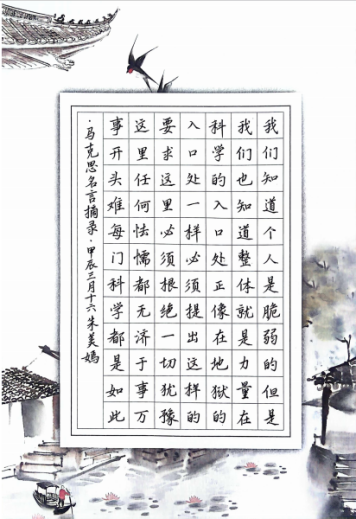 我们知道个人是脆弱的但是
我们也知道整体就是力量在
科学的入口处正像在地狱的
入口处一样必须提出这样的
要求这里必须根绝一切犹豫
这里任何怯懦都无济于事万
事开头难每门科学都是如此
·马克思名言摘录·甲辰三月十六朱美嫣